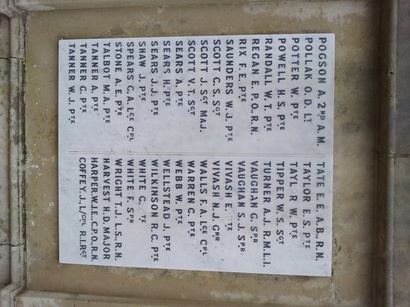 POGSON A. 2ND A.M.
POLLAK G. D. LT
POTTER W. PTE
POWELL H. S. PTE
RANDALL W. T. PTE
REGAN E. P.O.R.N.
RIX F. E. PTE
SAUNDERS W. J. PTE
SCOTT C. S. SGT
SCOTT J. SGT MAJ.
SCOTT V. T. SGT
SEARS A. PTE
SEARS H. PTE
SEARS H. J. PTE
SHAW J. PTE
SPEARS C. A. LCE CPL
STONE A. E. PTE
TALBOT M. A. PTE
TANNER A. PTE
TANNER C. PTE
TANNER W. J. PTE
TATE E. E. A.B., R.N.
TAYLOR E. S. PTE
TAYLOR W. PTE
TIPPER W. S. SGT
TURNER A. J. R.M.L.I.
VAUGHAN G. SPR
VAUGHAN S. J. SPR
VIVASH E. PTE
VIVASH N. J. GNR
WALLS F. A. LCE CPL
WARREN C. PTE
WEBB W. PTE
WELLSTEAD J. PTE
WILKINSON R. C. PTE
WHITE G. PTE
WHITE F. SPR
WRIGHT T. J. L.S., R.N.
HARVEST H. D. MAJOR
HARPER W.J.E. C.P.O.R.N.
COFFEY J. L/CPL R.I.RGT